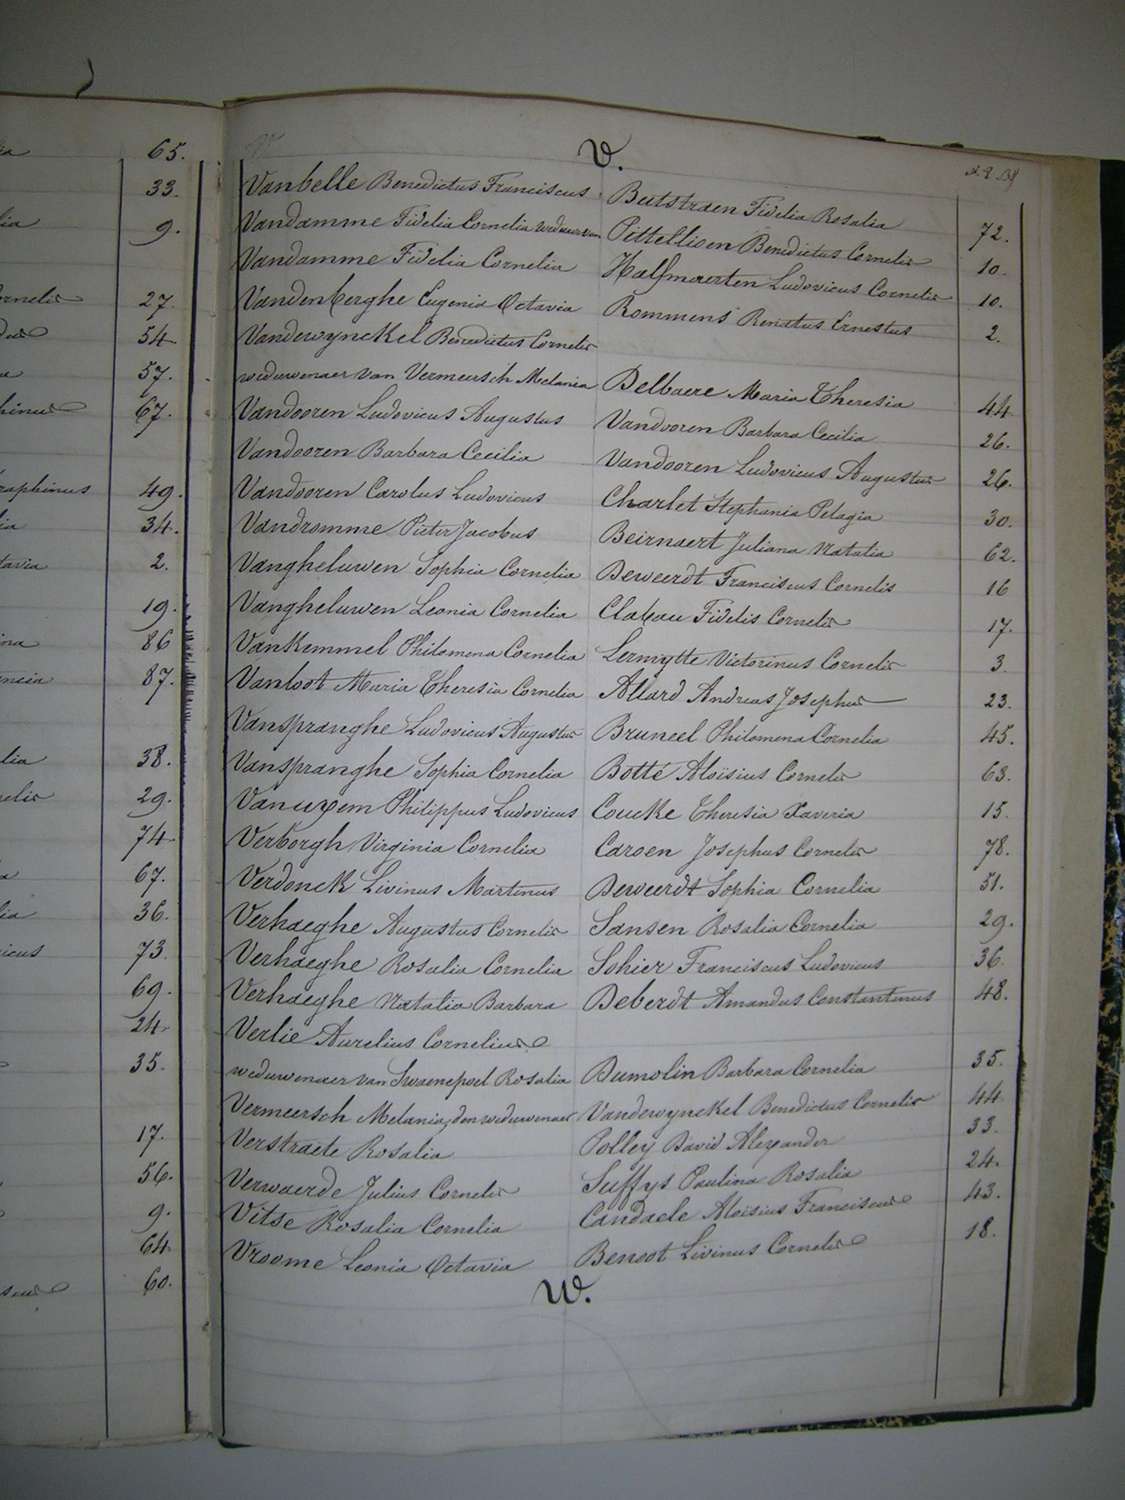 65.
33.
9.
27.
54
57.
67.
49.
34.
2.
19.
86
87.
38.
29.
74
67.
36.
73
69.
24
35.
17.
56.
9.
64
60.
V.
Vanbelle Benedictus Franciscus Butstraen Fidelia Rosalia 72.
Vandamme Fidelia Cornelia weduwe van Pittellioen Benedictus Cornelis 10.
Vandamme Fidelia Cornelia Halfmaerten Ludovicus Cornelis 10.
Vandenberghe Eugenia Octavia Rommens Renatus Ernestus 2.
Vandewynckel Benedictus Cornelis
weduwenaer van Vermeersch Melania Delbaere Maria Theresia 44
Vandooren Ludovicus Augustus Vandooren Barbara Cecilia 26.
Vandooren Barbara Cecilia Vandooren Ludovicus Augustus 26.
Vandooren Carolus Ludovicus Charlet Stephania Pelagia 30.
Vandromme Pieter Jacobus Beirnaert Juliana Natalia 62.
Vangheluwen Sophia Cornelia Deweerdt Franciscus Cornelis 16
Vangheluwen Leonia Cornelia Clabau Fidelis Cornelis 17.
VanKemmel Philomena Cornelia Lermytte Victorinus Cornelis 3.
Vanloot Maria Theresia Cornelia Allard Andreas Josephus 23.
Vanspranghe Ludovicus Augustus Bruneel Philomena Cornelia 45.
Vanspranghe Sophia Cornelia Botté Aloisius Cornelis 63.
Vanuxem Philippus Ludovicus Coucke Theresia Xaveria 15.
Verborgh Virginia Cornelia Caroen Josephus Cornelis 78.
Verdonck Livinus Martinus Deweerdt Sophia Cornelia 51.
Verhaeghe Augustus Cornelis Sansen Rosalia Cornelia 29.
Verhaeghe Rosalia Cornelia Sohier Franciscus Ludovicus 36.
Verhaeghe Natalia Barbara Deberdt Amandus Constantinus 48.
Verlie Aurelius Cornelius
weduwenaer van Swaenepoel Rosalia Dumolin Barbara Cornelia 35.
Vermeersch Melania, den weduwenaer Vandewynckel Benedictus Cornelis 44
Verstraete Rosalia Polley David Alexander 33.
Verwaerde Julius Cornelis Suffys Paulina Rosalia 24.
Vitse Rosalia Cornelia Candaele Aloisius Franciscus 43.
Vroome Leonia Octavia Benoot Livinus Cornelis 18.
W.